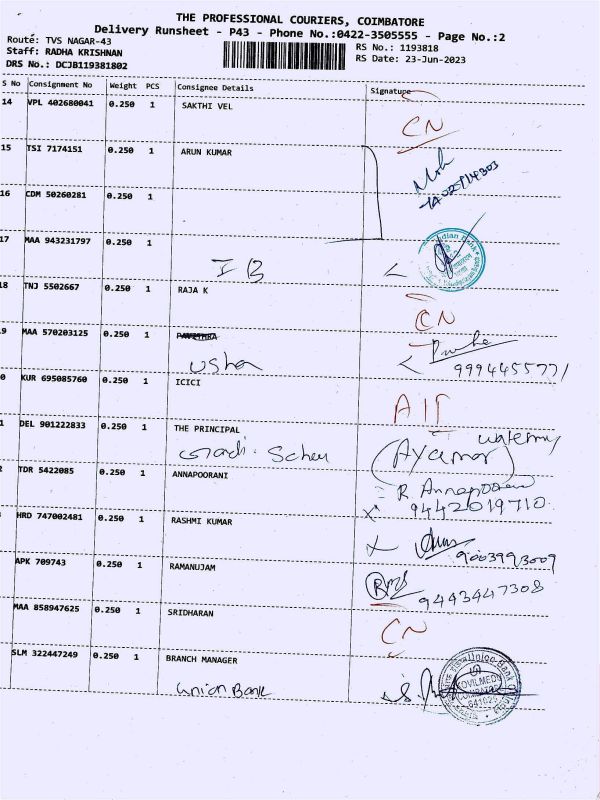 THE PROFESSIONAL COURIERS, COIMBATORE
Delivery Runsheet - P43 - Phone No.:0422-3505555 - Page No.:2
Route: TVS NAGAR-43
RS No.: 1193818
Staff: RADHA KRISHNAN
RS Date: 23-Jun-2023
DRS No.: DCJB119381802
S No Consignment No Weight PCS Consignee Details Signature
14 VPL 402680041 0.250 1 SAKTHI VEL
CN
15 TSI 7174151 0.250 1 ARUN KUMAR
16 CDM 50260281 0.250 1
17 MAA 943231797 0.250 1
IB
18 TNJ 5502667 0.250 1 RAJA K
CN
9 MAA 570203125 0.250 1 PAVITHRA
usha
9994455771
0 KUR 695085760 0.250 1 ICICI
1 DEL 901222833 0.250 1 THE PRINCIPAL
2 TDR 5422085 0.250 1 ANNAPOORANI
R. Annapoorani
9442019710
HRD 747002481 0.250 1 RASHMI KUMAR
9003993009
APK 709743 0.250 1 RAMANUJAM
9443447308
MAA 858947625 0.250 1 SRIDHARAN
CN
SLM 322447249 0.250 1 BRANCH MANAGER
Union Bank